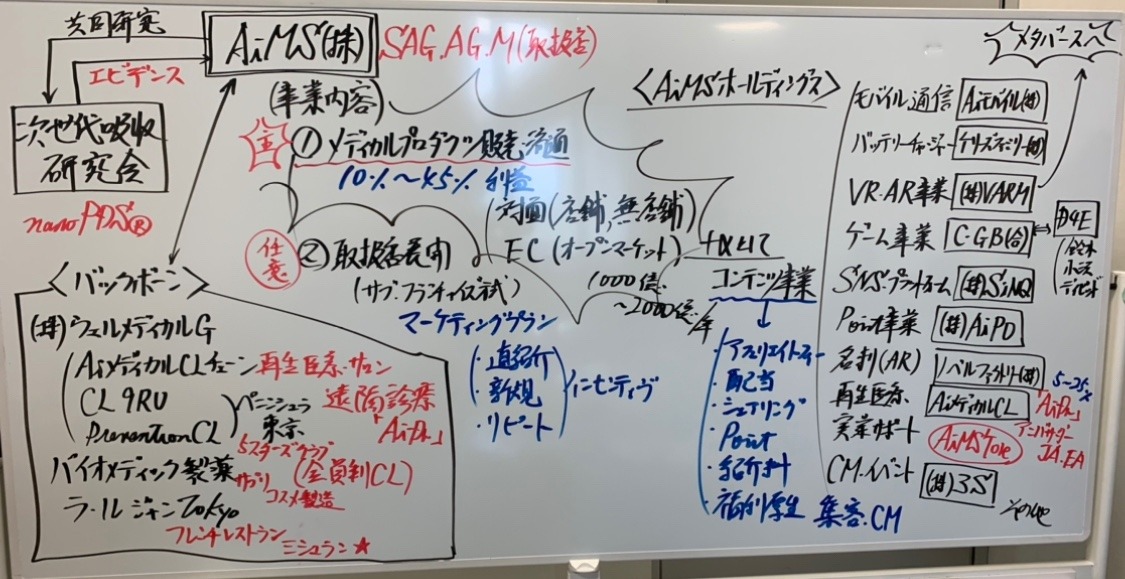 共同研究
エビデンス
次世代吸収
研究会
nanoPDS®
AiMS(株)
SAG.AG.M(取扱店)
(事業内容)
主
① メディカルプロダクツ販売・流通
10%〜45% 利益
対面(店舗,無店舗)
EC(オープンマーケット)
1000億
〜2000億/年
任意
② 取扱店展開
(サブ・フランチャイズ式)
マーケティングプラン
・直紹介
・新規
・リピート
インセンティヴ
<バックボーン>
(株)ウェルメディカルG
AiメディカルCLチェーン 再生医療・サロン
CL 9RU
PreventionCL
ペニンシュラ
東京
遠隔診療
「AiDr.」
5スターズクラブ
(会員制CL)
バイオメディック製薬
サプリ
コスメ製造
ラ・ル ジャンTokyo
フレンチレストラン
ミシュラン★
<AiMSホールディングス>
+αとして
コンテンツ事業
・アフェリエイトフィー
・配当
・シェアリング
・Point
・紹介料
・福利厚生
集客.CM
メタバースへ
モバイル通信 Aiモバイル(株)
バッテリーチャージャー
VR.AR事業 (株)VARM
ゲーム事業 C.G.B(合)
D4E
SNS.プラットホーム (株)SiNQ
Point事業 (株)AiPO
名刺(AR) ノベルファクトリー(株)
再生医療 AiメディカルCL
「AiDr.」
5-25%
実業サポート AiMSTore
アンバサダー
JA.EA
CM.イベント (株)3S
その他